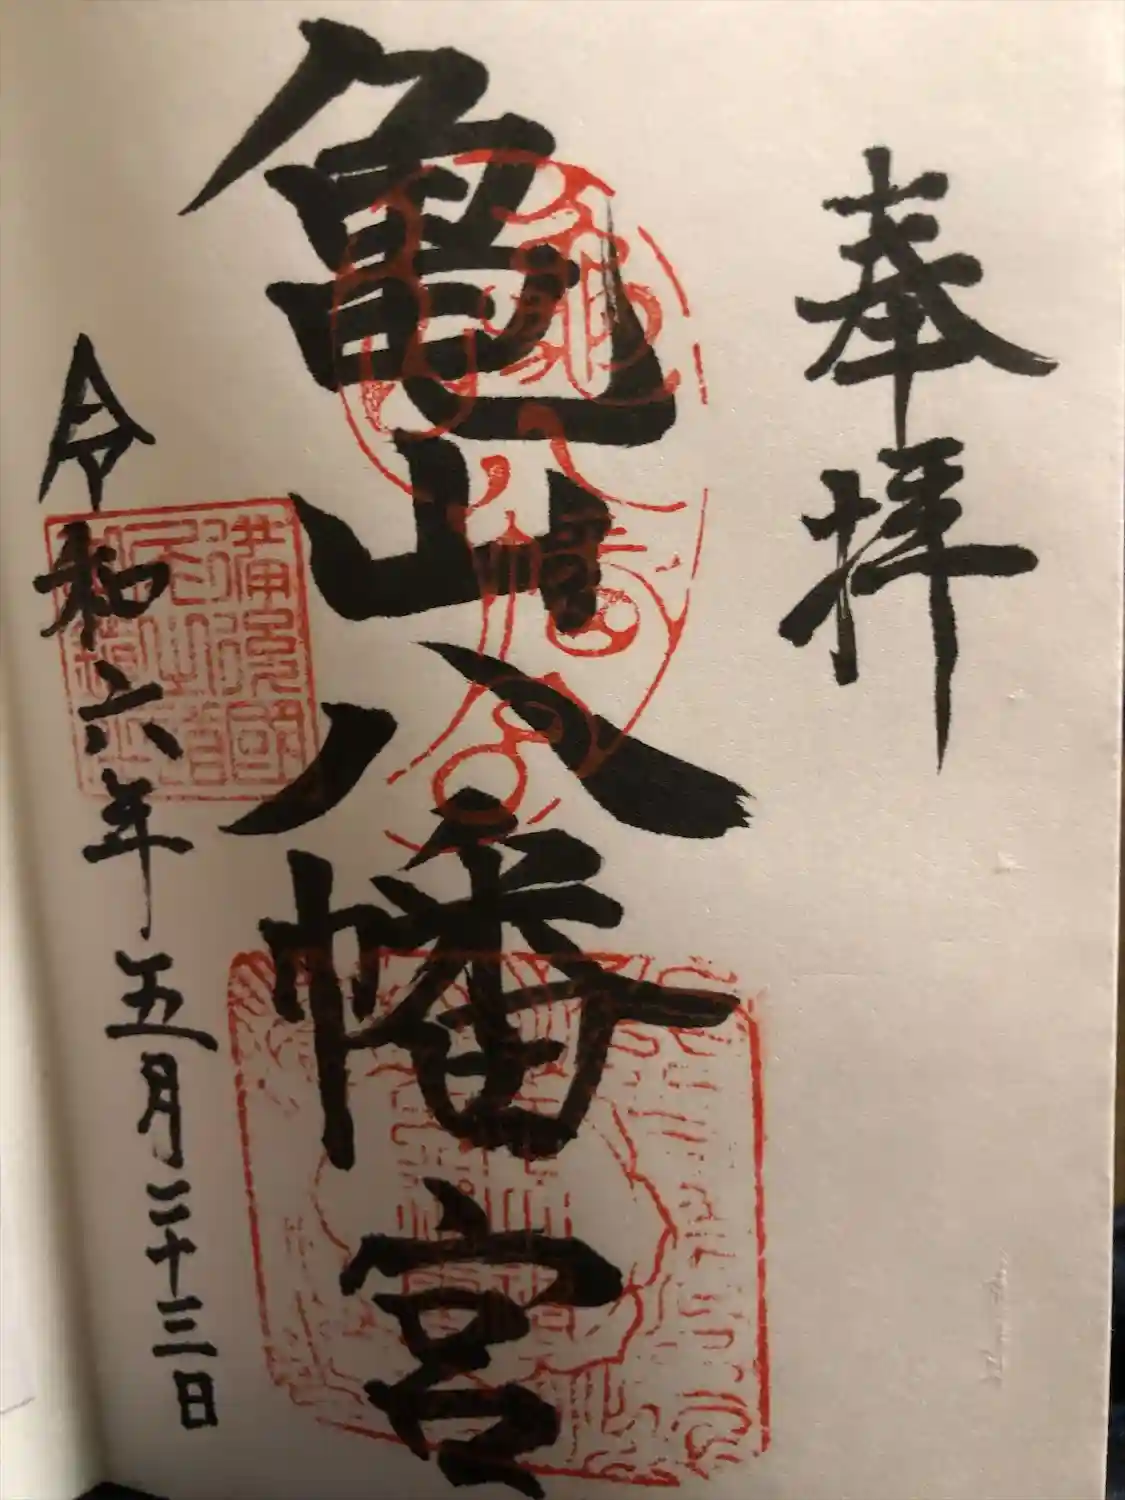 奉拝
亀山八幡宮
令和六年五月二十三日